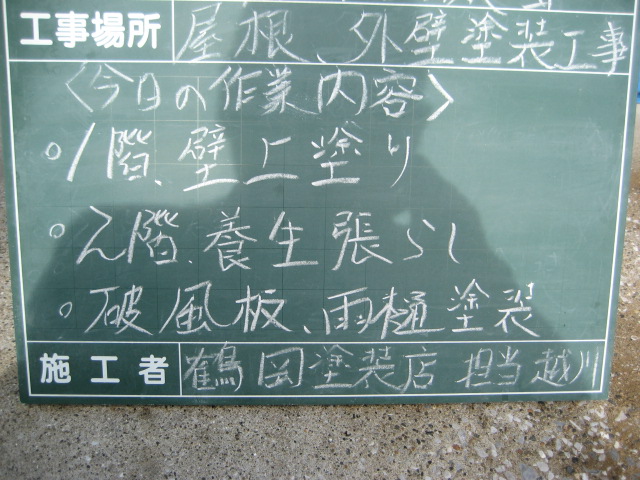 工事場所 屋根、外壁塗装工事
〈今日の作業内容〉
○1階、壁上塗り
○2階、養生張らし
○破風板、雨樋塗装
施工者 鶴岡塗装店 担当 越川